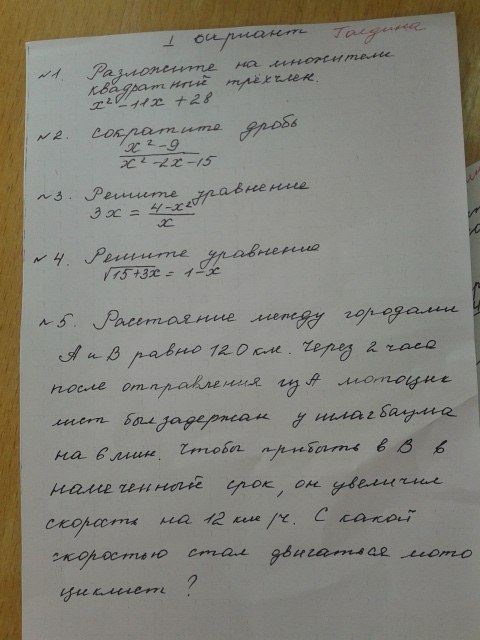 I вариант
№1. Разложите на множители
квадратный трёхчлен.
x² - 11x + 28
№2. Сократите дробь
x² - 9
x² - 2x - 15
№3. Решите уравнение
3x = 4 - x²
x
№4. Решите уравнение
√15+3x = 1 - x
№5. Расстояние между городами
А и В равно 120 км. Через 2 часа
после отправления из А мотоцик
лист был задержан у шлагбаума
на 6 мин. Чтобы прибыть в В в
намеченный срок, он увеличил
скорость на 12 км/ч. С какой
скоростью стал двигаться мото
циклист?